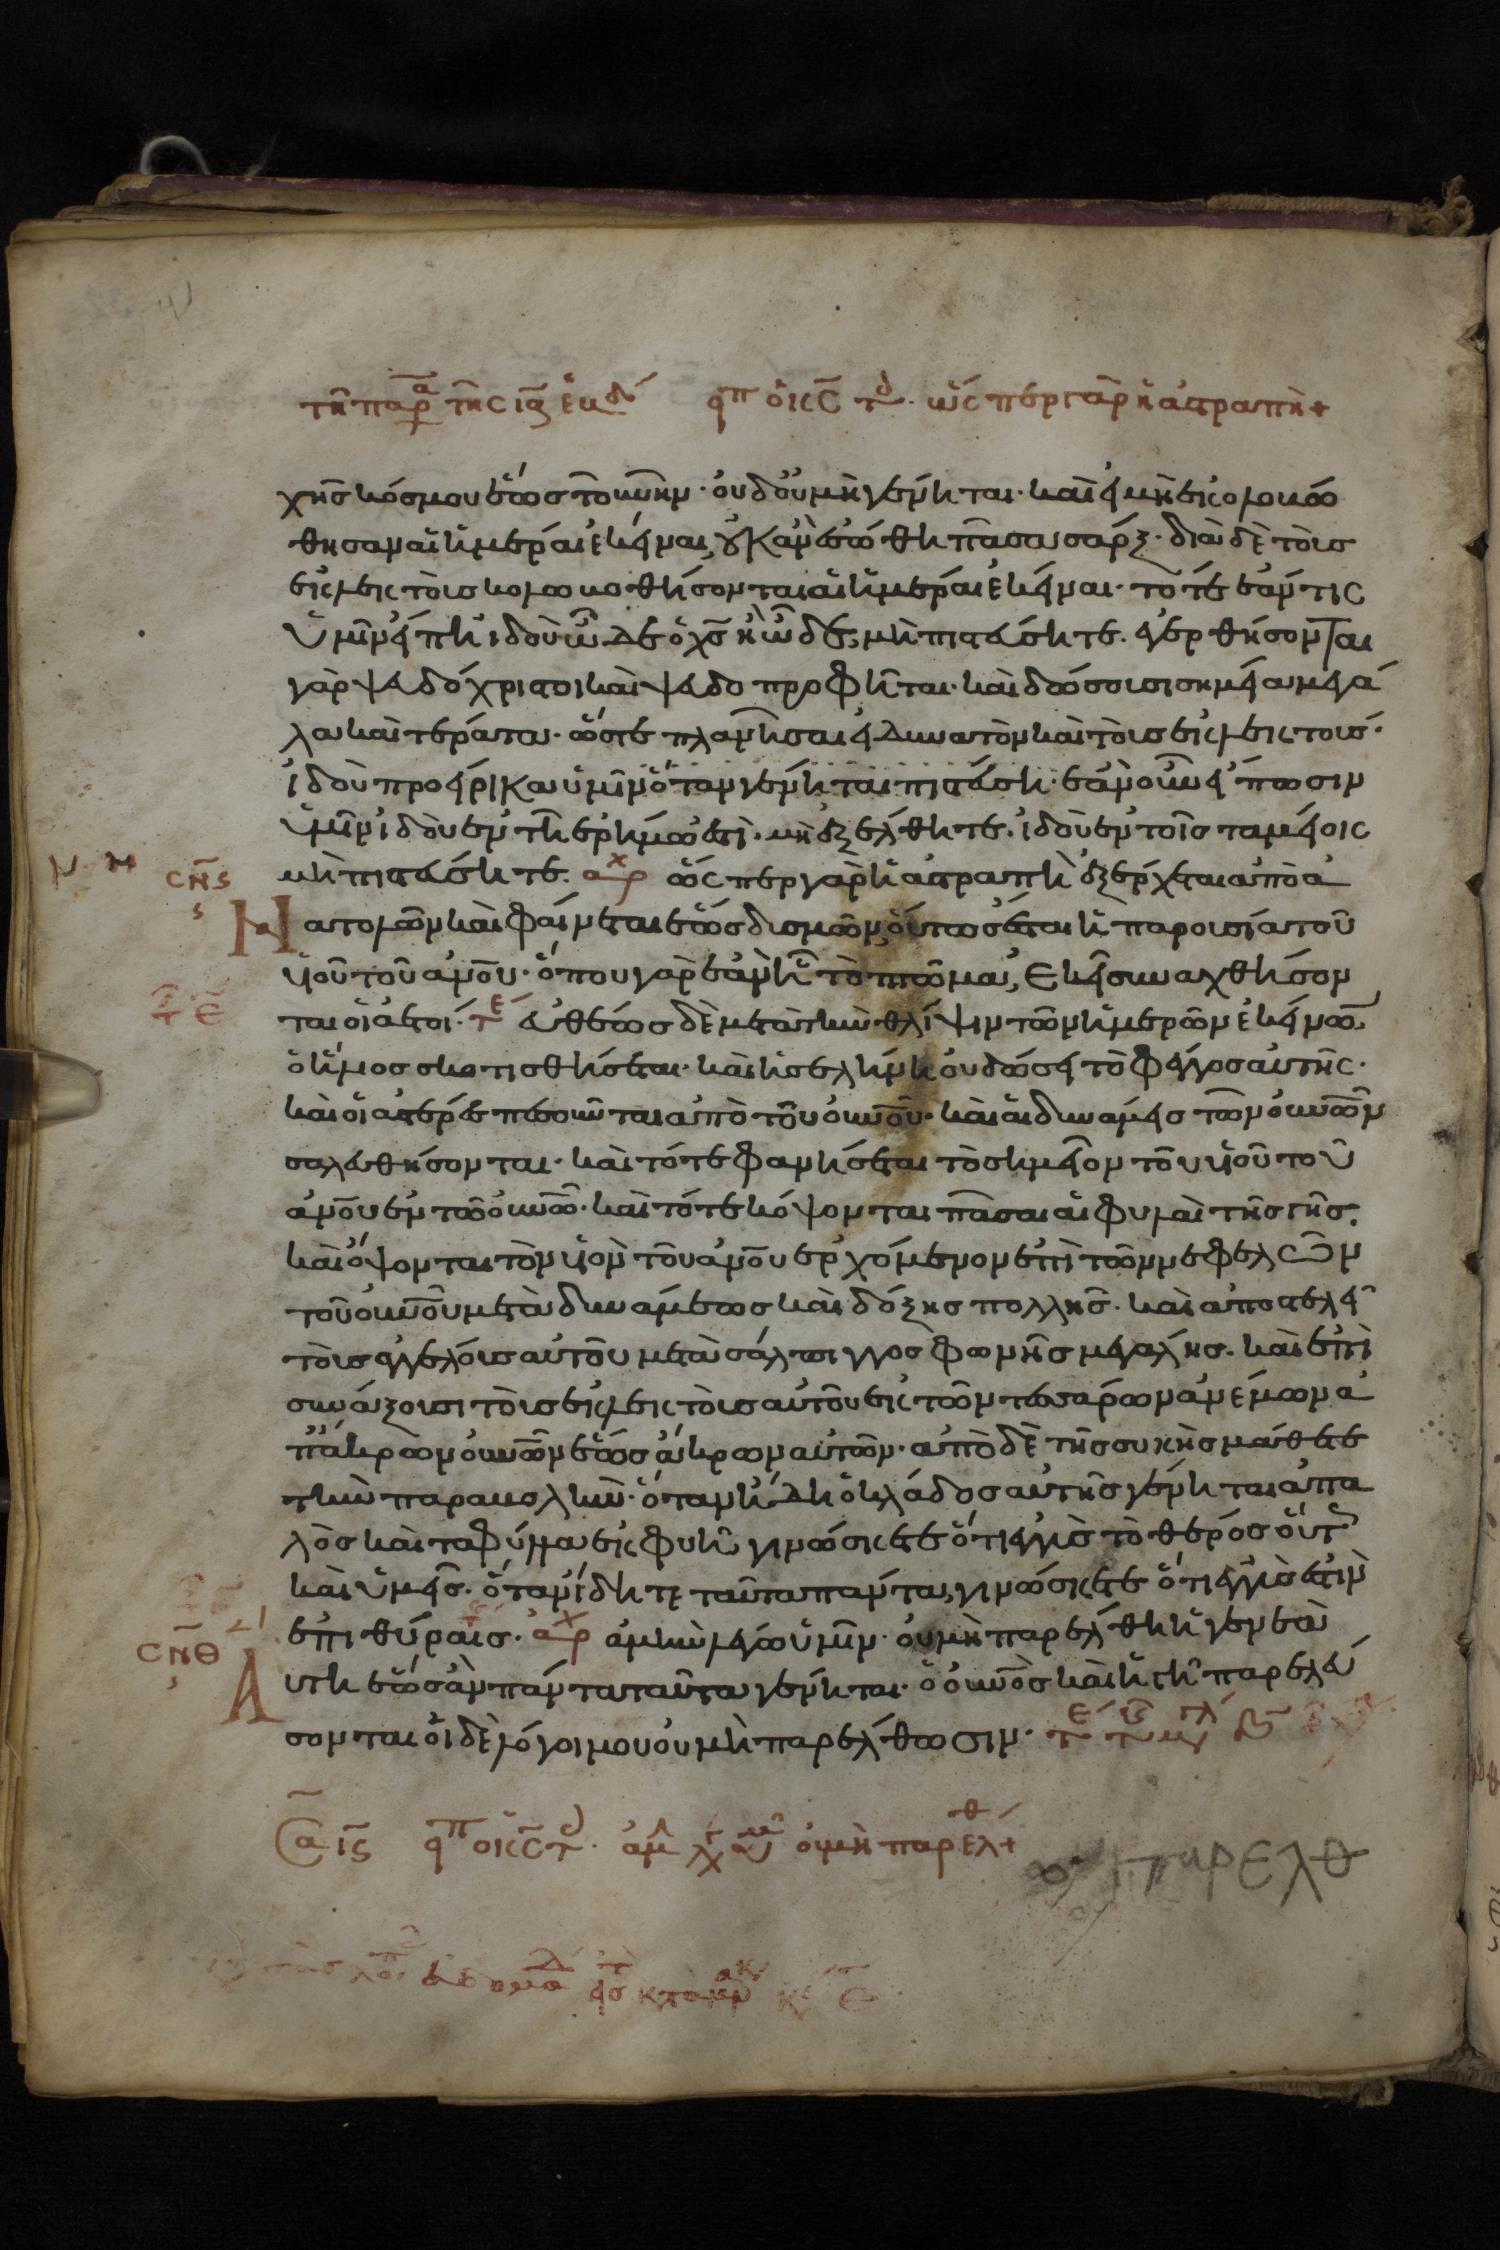 τῆ παρα τῆς ιϛ ἑβδ ειπ ὁ κς τ. ὥσπερ γὰρ ἡ ἀστραπὴ +
χῆς κόσμου ἕως τοῦ νῦν· οὐδ οὐ μὴ γένηται· καὶ εἰ μὴ ἐκολοβώ
θησαν αἱ ἡμέραι ἐκείναι, οὐκ ἂν ἐσώθη πᾶσα σάρξ· διὰ δὲ τοὺς
ἐκλεκτοὺς κολοβωθήσονται αἱ ἡμέραι ἐκείναι· τότε ἐάν τις
ὑμῖν εἴπη ἰδοὺ ὧδε ὁ χς ἢ ὧδε, μὴ πιστεύσητε· ἐγερθήσονται
γὰρ ψευδόχριστοι καὶ ψευδοπροφῆται· καὶ δώσουσι σημεῖα μεγά
λα καὶ τέρατα· ὥστε πλανῆσαι εἰ δυνατὸν καὶ τοὺς ἐκλεκτούς·
ἰδοὺ προείρηκα ὑμῖν ὅταν γένηται πιστεύση· ἐὰν οὖν εἴπωσιν
ὑμῖν ἰδοὺ ἐν τῆ ἐρήμω ἐστὶ· μὴ ἐξέλθητε· ἰδοὺ ἐν τοῖς ταμείοις
μὴ πιστεύσητε· αρχ ὥσπερ γὰρ ἡ ἀστραπὴ ἐξέρχεται ἀπὸ ἀ
νατολῶν καὶ φαίνεται ἕως δυσμῶν οὕτως ἔσται ἡ παρουσία τοῦ
υἱοῦ τοῦ ἀνου· ὅπου γὰρ ἐὰν ἦ τὸ πτῶμα, ἐκεῖ συναχθήσον
ται οἱ ἀετοί· τε εὐθέως δὲ μετὰ τὴν θλίψιν τῶν ἡμερῶν ἐκείνων,
ὁ ἥλιος σκοτισθήσεται· καὶ ἡ σελήνη οὐ δώσει τὸ φέγγος αὐτῆς·
καὶ οἱ ἀστέρες πεσοῦνται ἀπὸ τοῦ οὐνοῦ· καὶ αἱ δυνάμεις τῶν οὐνῶν
σαλευθήσονται· καὶ τότε φανήσεται τὸ σημεῖον τοῦ υἱοῦ τοῦ
ἀνου ἐν τῶ οὐνῶ· καὶ τότε κόψονται πᾶσαι αἱ φυλαὶ τῆς γῆς·
καὶ ὄψονται τὸν υἱὸν τοῦ ἀνου ἐρχόμενον ἐπὶ τῶν νεφελῶν
τοῦ οὐνοῦ μετὰ δυνάμεως καὶ δόξης πολλῆς· καὶ ἀποστελεῖ
τοὺς ἀγγέλους αὐτοῦ μετὰ σάλπιγγος φωνῆς μεγάλης· καὶ ἐπι
συνάξουσι τοὺς ἐκλεκτοὺς αὐτοῦ ἐκ τῶν τεσσάρων ἀνέμων ἀ
π ἄκρων οὐνῶν ἕως ἄκρων αὐτῶν· ἀπὸ δὲ τῆς συκῆς μάθετε
τὴν παραβολήν· ὅταν ἤδη ὁ κλάδος αὐτῆς γένηται ἁπα
λὸς καὶ τὰ φύλλα ἐκφυῆ γινώσκετε ὅτι ἐγγὺς τὸ θέρος οὕτ
καὶ ὑμεῖς· ὅταν ἴδητε ταῦτα πάντα, γινώσκετε ὅτι ἐγγύς ἐστιν
ἐπι θύραις· αρχ ἀμὴν λέγω ὑμῖν· οὐ μὴ παρέλθη ἡ γενεὰ
αὕτη ἕως ἂν πάντα ταῦτα γένηται· ὁ οὐνὸς καὶ ἡ γῆ παρελεύ
σονται οἱ δὲ λόγοι μου οὐ μὴ παρέλθωσιν·
σνς
σνθ
Σα ις ειπ ο κς τ. ἀμ λγ ὑμ ου μὴ παρελθ +
παρελθ